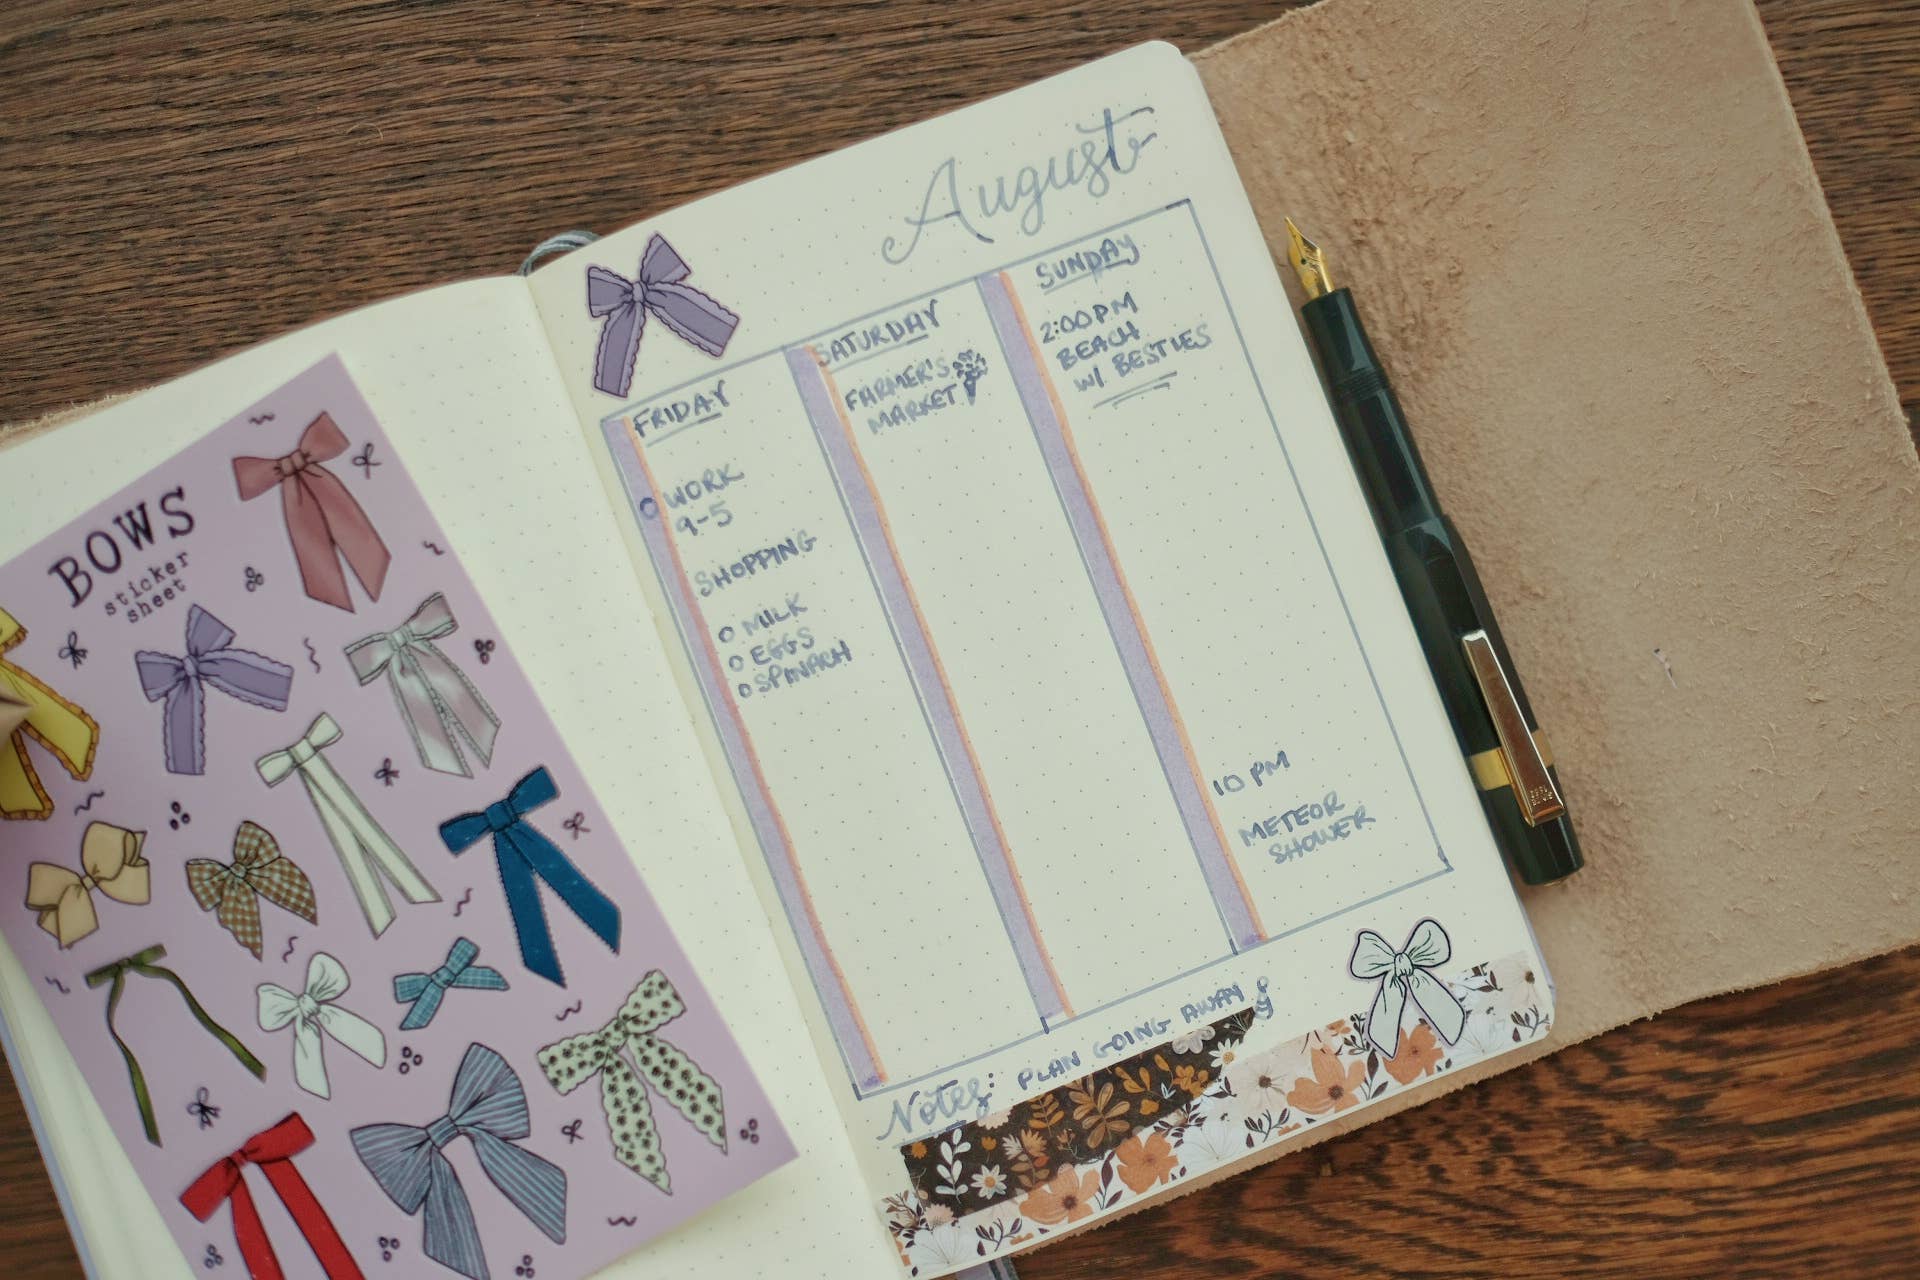 BOWS
sticker
sheet
August
FRIDAY
WORK
9-5
SHOPPING
MILK
EGGS
SPINACH
SATURDAY
FARMER'S
MARKET
SUNDAY
2:00PM
BEACH
W/ BESTIES
10 PM
METEOR
SHOWER
Notes: PLAN GOING AWAY